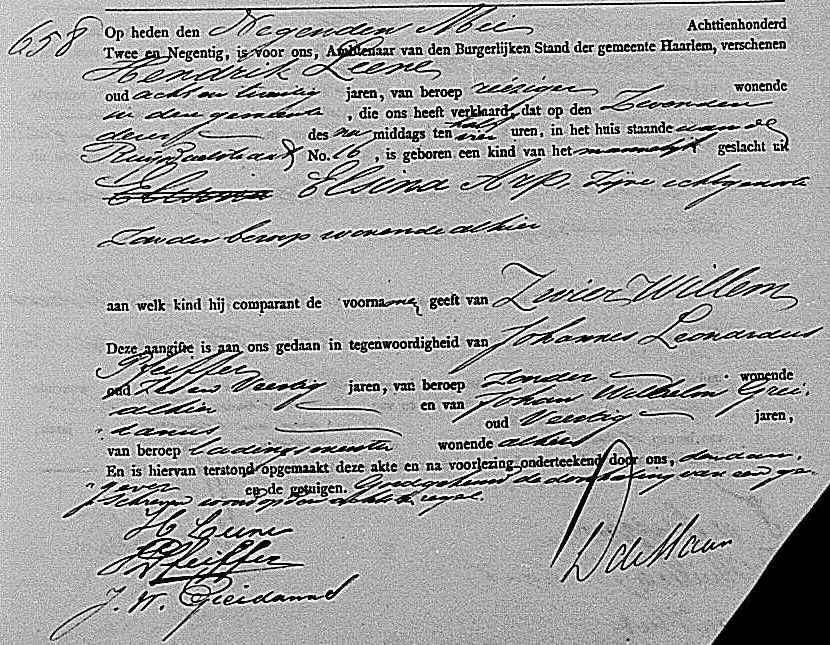 658
Op heden den Negenden Mei Achttienhonderd
Twee en Negentig, is voor ons, Ambtenaar van den Burgerlijken Stand der gemeente Haarlem, verschenen
Hendrik Leene
oud acht en twintig jaren, van beroep reiziger wonende
in deze gemeente, die ons heeft verklaard, dat op den Zevenden
dezer des na middags ten half vier uren, in het huis staande aan de
Ruijsdaelstraat No. 16, is geboren een kind van het mannelijk geslacht uit
Elsina Arp, zijne echtgenoote
zonder beroep wonende alhier
aan welk kind hij comparant de voornamen geeft van Zwier Willem
Deze aangifte is aan ons gedaan in tegenwoordigheid van Johannes Leonardus
Pfeiffer
oud Zes en Veertig jaren, van beroep zonder wonende
alhier en van Johan Wilhelm Grei-
danus oud Veertig jaren,
van beroep ladingmeester wonende alhier
En is hiervan terstond opgemaakt deze akte en na voorlezing onderteekend door ons, den aan-
gever en de getuigen. Goedgekeurd de doorhaling van een ge-
schreven woord op den achtsten regel.
H Leene
Pfeiffer
J. W. Greidanus
D de Haan